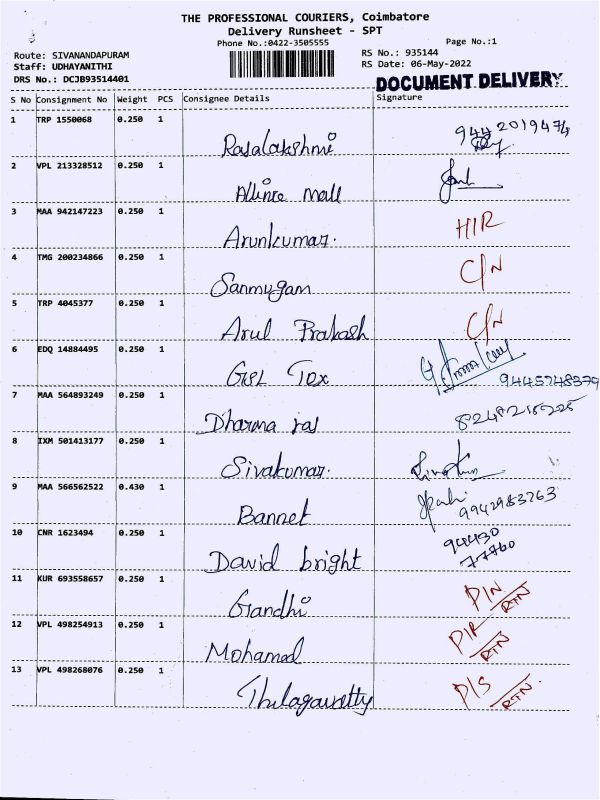 THE PROFESSIONAL COURIERS, Coimbatore
Delivery Runsheet - SPT
Phone No.:0422-3505555
Page No.:1
Route: SIVANANDAPURAM
RS No.: 935144
Staff: UDHAYANITHI
RS Date: 06-May-2022
DRS No.: DCJB93514401
DOCUMENT DELIVERY
S No Consignment No Weight PCS Consignee Details Signature
1 TRP 1550068 0.250 1
Rajalakshmi 9442019474
2 VPL 213328512 0.250 1
Allince mall
3 MAA 942147223 0.250 1
Arunkumar. HIR
4 TMG 200234866 0.250 1
Sanmugam C/N
5 TRP 4045377 0.250 1
Arul Prakash C/N
6 EDQ 14884495 0.250 1
Tex 9445748379
7 MAA 564893249 0.250 1
Dharma raj
8 IXM 501413177 0.250 1
Sivakumar.
9 MAA 566562522 0.430 1
Bannet 9942983763
10 CNR 1623494 0.250 1
David bright 94430
77760
11 KUR 693558657 0.250 1
Gandhi P/N RTN
12 VPL 498254913 0.250 1
Mohamad P/R RTN
13 VPL 498268076 0.250 1
P/S RTN.